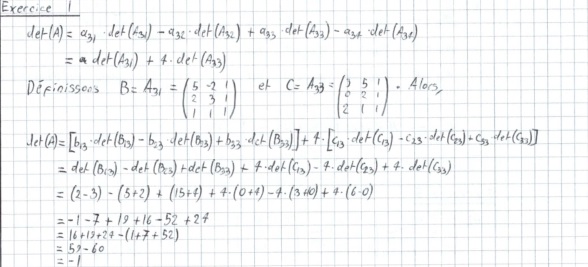 Exercice 1
det(A) = a₃₁ · det(A₃₁) − a₃₂ · det(A₃₂) + a₃₃ · det(A₃₃) − a₃₄ · det(A₃₄)
= det(A₃₁) + 4 · det(A₃₃)
Définissons B = A₃₁ = (5 -2 1 / 2 3 1 / 1 1 1) et C = A₃₃ = (3 5 1 / 0 2 1 / 2 1 1). Alors,
det(A) = [b₁₃ · det(B₁₃) − b₂₃ · det(B₂₃) + b₃₃ · det(B₃₃)] + 4 · [c₁₃ · det(C₁₃) − c₂₃ · det(C₂₃) + c₃₃ det(C₃₃)]
= det(B₁₃) − det(B₂₃) + det(B₃₃) + 4 · det(C₁₃) − 4 · det(C₂₃) + 4 · det(C₃₃)
= (2−3) − (5+2) + (15+4) + 4·(0+4) − 4·(3+10) + 4·(6−0)
= −1 − 7 + 19 + 16 − 52 + 24
= 16+19+24 − (1+7+52)
= 59 − 60
= −1